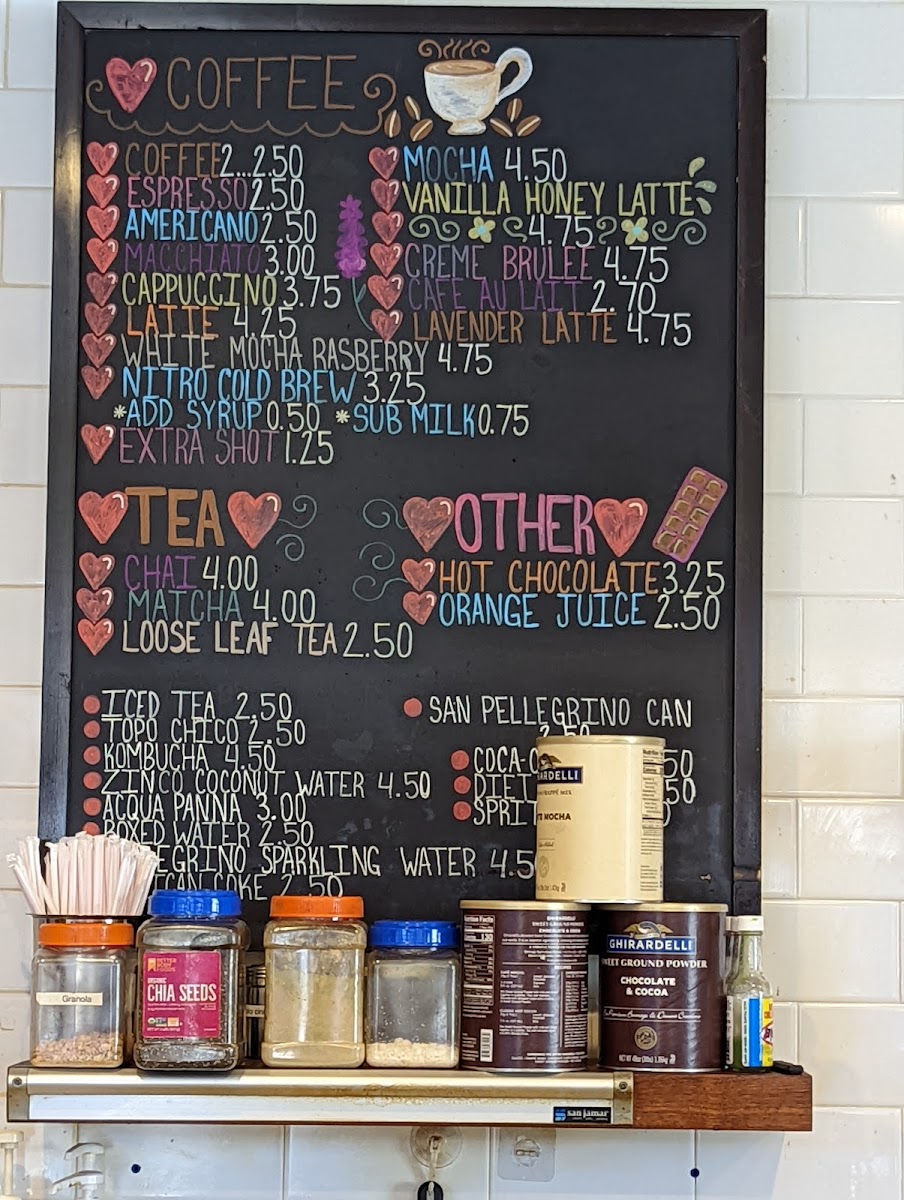 COFFEE
COFFEE 2...2.50
ESPRESSO 2.50
AMERICANO 2.50
MACCHIATO 3.00
CAPPUCCINO 3.75
LATTE 4.25
WHITE MOCHA RASBERRY 4.75
NITRO COLD BREW 3.25
*ADD SYRUP 0.50 *SUB MILK 0.75
EXTRA SHOT 1.25
MOCHA 4.50
VANILLA HONEY LATTE
4.75
CREME BRULEE 4.75
CAFE AU LAIT 2.70
LAVENDER LATTE 4.75
TEA
CHAI 4.00
MATCHA 4.00
LOOSE LEAF TEA 2.50
OTHER
HOT CHOCOLATE 3.25
ORANGE JUICE 2.50
ICED TEA 2.50
TOPO CHICO 2.50
KOMBUCHA 4.50
ZINCO COCONUT WATER 4.50
ACQUA PANNA 3.00
BOXED WATER 2.50
EGRINO SPARKLING WATER 4.5
CAN COKE 2.50
SAN PELLEGRINO CAN
2.50
COCA-
50
DIET
50
SPRI
MOCHA
Granola
BETTER BODY FOODS
ORGANIC
CHIA SEEDS
Nutrition Facts
GHIRARDELLI
SWEET GROUND POWDER
CHOCOLATE
& COCOA
san jamar